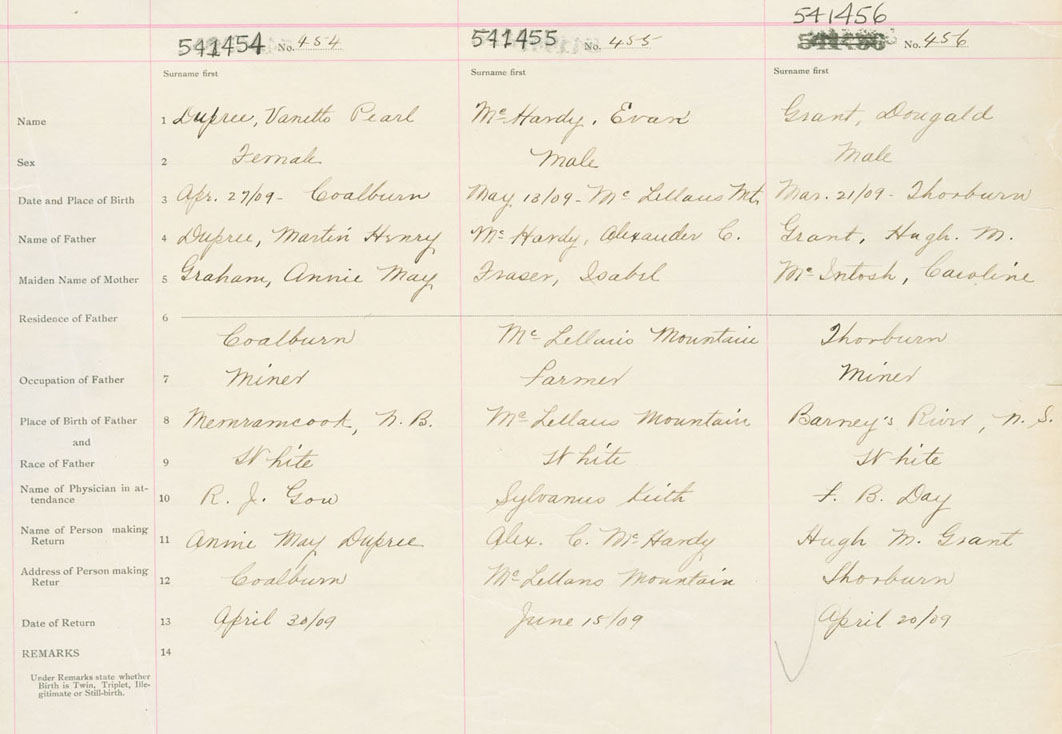 541456
541454 No. 454 541455 No. 455 No. 456
Surname first Surname first Surname first
Name 1 Dupree, Vanetta Pearl Mc Hardy, Evan Grant, Dougald
Sex 2 Female Male Male
Date and Place of Birth 3 Apr. 27/09 - Coalburn May 13/09 - Mc Lellans Mt. Mar. 21/09 - Thorburn
Name of Father 4 Dupree, Martin Henry Mc Hardy, Alexander C. Grant, Hugh. M.
Maiden Name of Mother 5 Graham, Annie May Fraser, Isabel McIntosh, Caroline
Residence of Father 6
Coalburn Mc Lellans Mountain Thorburn
Occupation of Father 7 Miner Farmer Miner
Place of Birth of Father 8 Memramcook, N. B. Mc Lellans Mountain Barney's River, N. S.
and
Race of Father 9 White White White
Name of Physician in at-
tendance 10 R. J. Gow Sylvanus Keith F. B. Day
Name of Person making
Return 11 Annie May Dupree Alex. C. McHardy Hugh M. Grant
Address of Person making
Retur 12 Coalburn Mc Lellans Mountain Thorburn
Date of Return 13 April 30/09 June 15/09 April 20/09
REMARKS 14
Under Remarks state whether
Birth is Twin, Triplet, Ille-
gitimate or Still-birth.